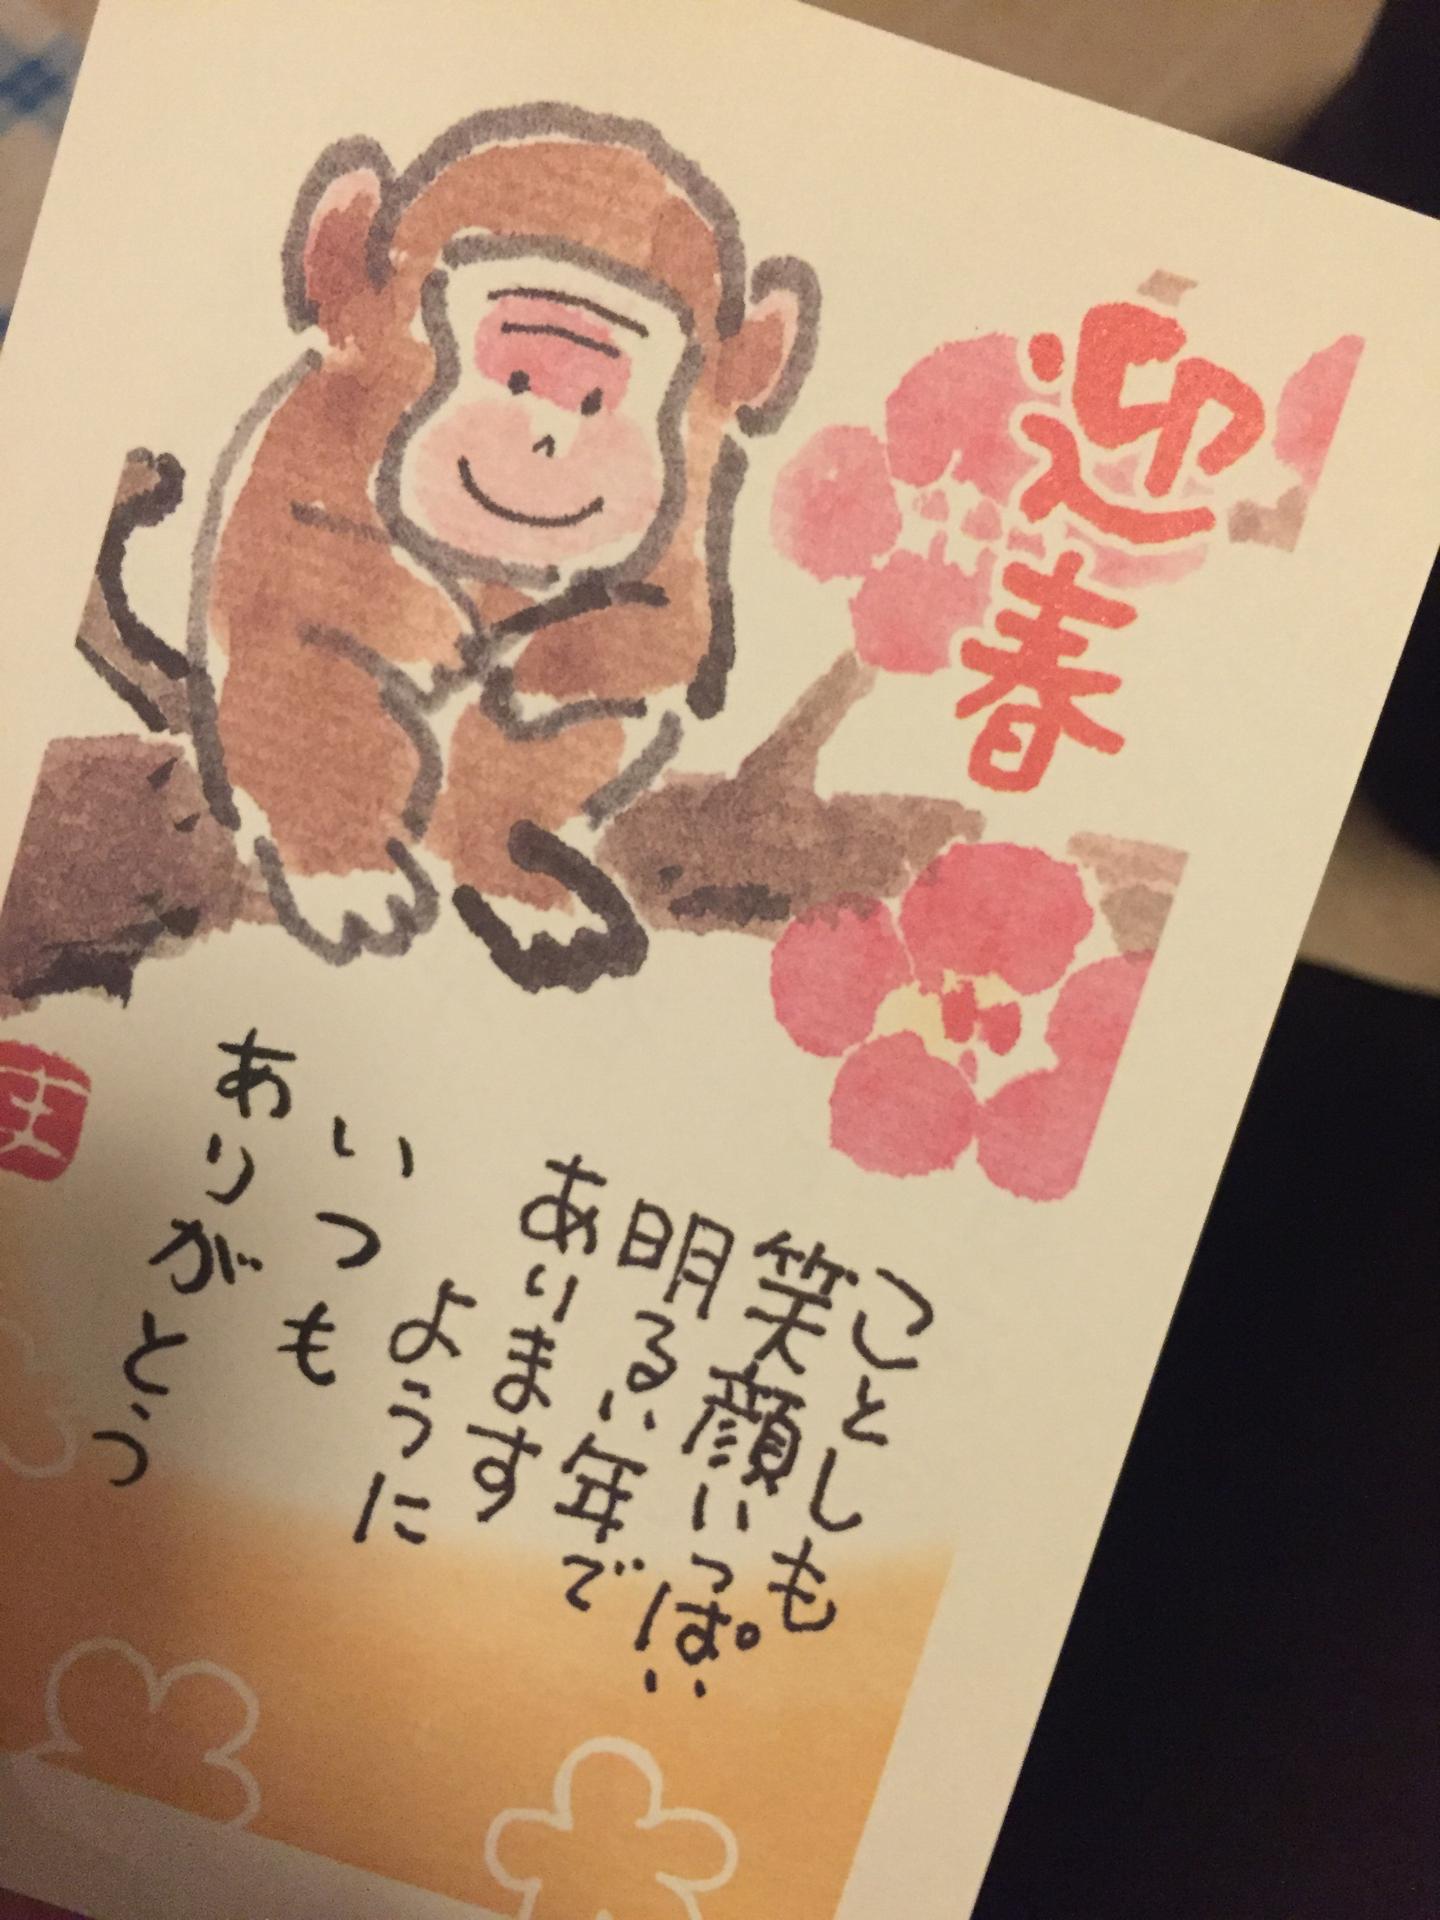 迎春
ことしも
笑顔いっぱい
明るい年で
あります
ように
いつも
ありがとう